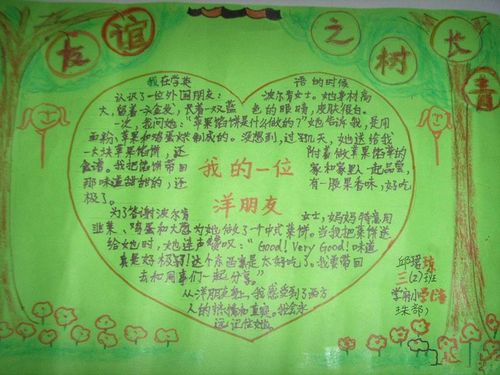 友谊之树长青
我在学英语的时候
认识了一位外国朋友:波尔肯女士。她身材高
大,留着一头金发,长着一双蓝色的眼睛,皮肤很白。
一次,我问她:“苹果馅饼是什么做的?”她告诉我,是用
面粉、苹果和鸡蛋火烤制成的。没想到,过了几天,她送给我
一大块苹果馅饼,还附着做苹果馅饼的
食谱。我把馅饼带回家和家里人一起品尝,
那味道甜甜的,还有一股果香味,好吃
极了。
我的一位
洋朋友
为了答谢波尔肯女士,妈妈特意用
韭菜、鸡蛋和大葱为她做了一个中式菜饼。当我把菜饼送
给她时,她连声赞叹:“Good!Very Good!味道
真是好极了!这个东西真是太好吃了。我要带回
去和同事们一起分享。”
从洋朋友身上,我感受到了西方
人的热情和直爽。我会永
远记住她。
三(2)班